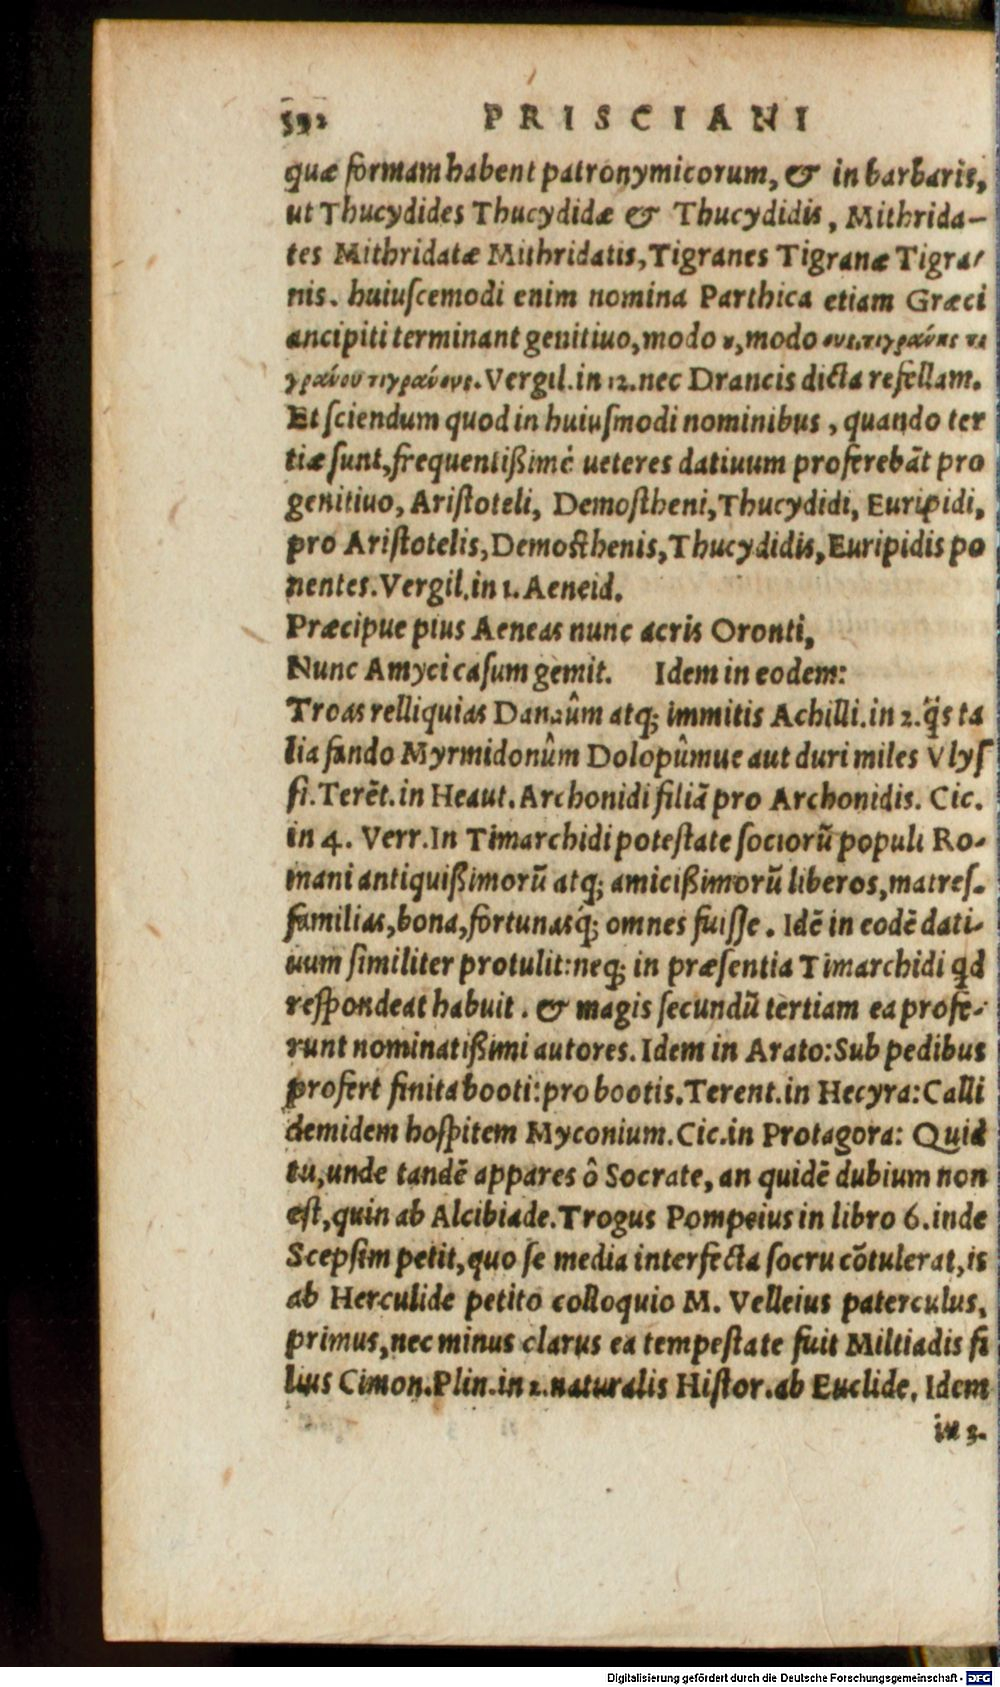 392 PRISCIANI
quæ formam habent patronymicorum, & in barbaris,
ut Thucydides Thucydidæ & Thucydidis, Mithrida-
tes Mithridatæ Mithridatis, Tigranes Tigranæ Tigra-
nis. huiuſcemodi enim nomina Parthica etiam Græci
ancipiti terminant genitiuo, modo ȣ, modo ους. τιγράνης τι
γράνου τιγράνους. Vergil. in 12. nec Drancis dicta refellam.
Et ſciendum quod in huiuſmodi nominibus, quando ter
tiæ ſunt, frequentiſsimè ueteres datiuum proferebāt pro
genitiuo, Ariſtoteli, Demoſtheni, Thucydidi, Euripidi,
pro Ariſtotelis, Demoſthenis, Thucydidis, Euripidis po
nentes. Vergil. in 1. Aeneid.
Præcipue pius Aeneas nunc acris Oronti,
Nunc Amyci caſum gemit. Idem in eodem:
Troas relliquias Danaûm atq; immitis Achilli. in 2. q̃s ta
lia fando Myrmidonûm Dolopûmue aut duri miles Vlyſ
ſi. Terẽt. in Heaut. Archonidi filiā pro Archonidis. Cic.
in 4. Verr. In Timarchidi poteſtate ſociorũ populi Ro-
mani antiquiſsimorũ atq; amiciſsimorũ liberos, matreſ-
familias, bona, fortunasq́; omnes fuiſſe. Idẽ in eodẽ dati-
uum ſimiliter protulit: neq; in præſentia Timarchidi qd
reſpondeat habuit. & magis ſecundũ tertiam ea profe-
runt nominatiſsimi autores. Idem in Arato: Sub pedibus
profert finita booti: pro bootis. Terent. in Hecyra: Calli
demidem hoſpitem Myconium. Cic. in Protagora: Quid
tu, unde tandẽ appares ô Socrate, an quidẽ dubium non
eſt, quin ab Alcibiade. Trogus Pompeius in libro 6. inde
Scepſim petit, quo ſe media interfecta ſocru cõtulerat, is
ab Herculide petito colloquio M. Velleius paterculus,
primus, nec minus clarus ea tempeſtate fuit Miltiadis fi
lius Cimon. Plin. in 2. naturalis Hiſtor. ab Euclide. Idem
in 3.
Digitalisierung gefördert durch die Deutsche Forschungsgemeinschaft - DFG